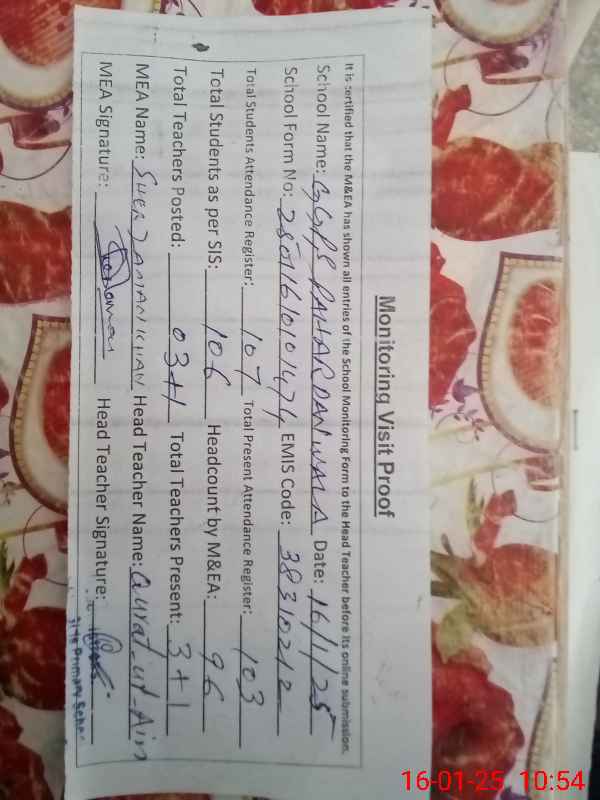 Monitoring Visit Proof
It is certified that the M&EA has shown all entries of the School Monitoring Form to the Head Teacher before its online submission.
School Name: GGPS PAHARDANWALA Date: 16/1/25
School Form No: EMIS Code: 38310212
Total Students Attendance Register: 107 Total Present Attendance Register: 103
Total Students as per SIS: 106 Headcount by M&EA: 96
Total Teachers Posted: 03+1 Total Teachers Present: 3+1
MEA Name: ZAMAN KHAN Head Teacher Name: Qurat-ul-Ain
MEA Signature: Head Teacher Signature:
Primary
16-01-25 10:54